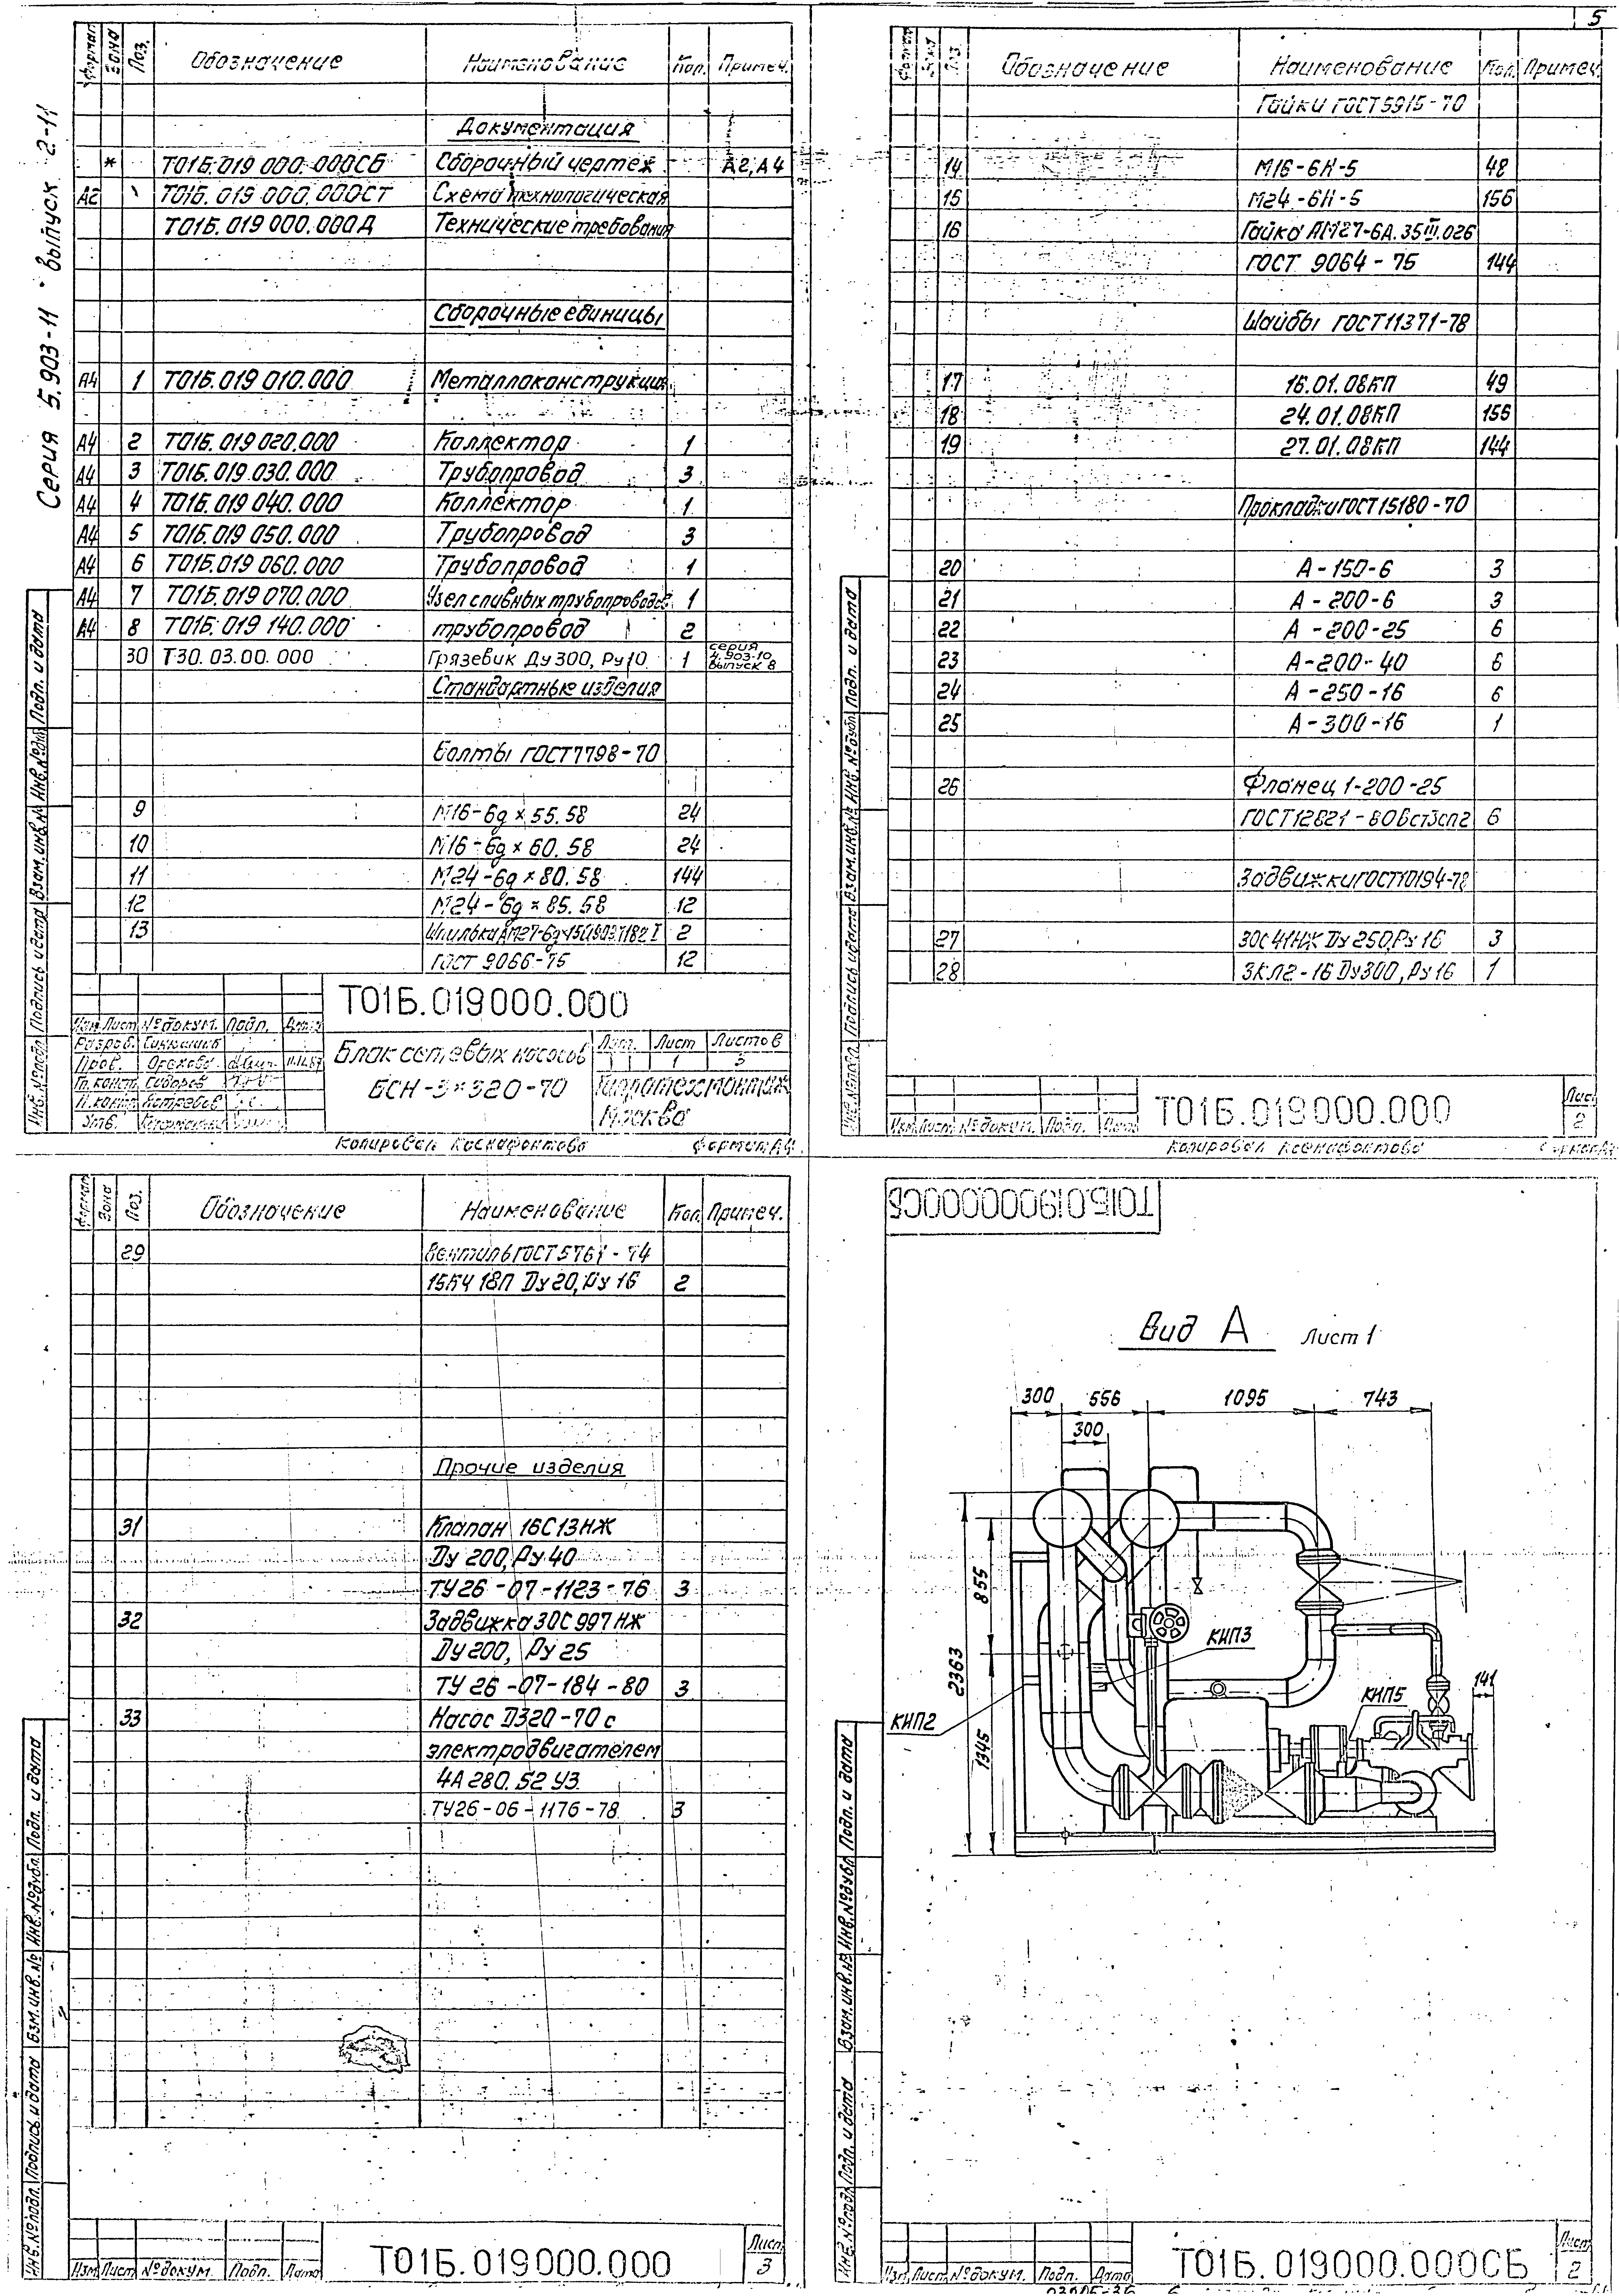 5
Серия 5.903-11 · выпуск 2-11
Формат Зона Поз. Обозначение Наименование Кол. Примеч.
Документация
* Т01Б.019 000.000СБ Сборочный чертеж А2,А4
А2 Т01Б.019 000.000СТ Схема технологическая
Т01Б.019 000.000Д Технические требования
Сборочные единицы
А4 1 Т01Б.019 010.000 Металлоконструкция
А4 2 Т01Б.019 020.000 Коллектор 1
А4 3 Т01Б.019 030.000 Трубопровод 3
А4 4 Т01Б.019 040.000 Коллектор 1
А4 5 Т01Б.019 050.000 Трубопровод 3
А4 6 Т01Б.019 060.000 Трубопровод 1
А4 7 Т01Б.019 070.000 Узел сливных трубопроводов 1
А4 8 Т01Б.019 140.000 трубопровод 2
30 Т30.03.00.000 Грязевик Ду300, Ру10 1 серия 4.903-10 выпуск 8
Стандартные изделия
Болты ГОСТ7798-70
9 М16-6g×55.58 24
10 М16-6g×60.58 24
11 М24-6g×80.58 144
12 М24-6g×85.58 12
13 Шпилька 2
ГОСТ 9066-75 12
Т01Б.019000.000
Изм. Лист № докум. Подп. Дата
Разраб.
Пров. Орехова
Гл. конст. Сидоров
Н. конт.
Утв.
Блок сетевых насосов
БСН-3×320-70
Лит. Лист Листов
1 3
Гидротехмонтаж
Москва
Копировал Ксенафонтова Формат А4
Инв.№подл. Подпись и дата Взам.инв.№ Инв.№дубл. Подп. и дата
Формат Зона Поз. Обозначение Наименование Кол. Примеч.
Гайки ГОСТ5915-70
14 М16-6Н-5 48
15 М24-6Н-5 156
16 Гайка АМ27-6А.35III.026
ГОСТ 9064-75 144
Шайбы ГОСТ11371-78
17 16.01.08КП 49
18 24.01.08КП 156
19 27.01.08КП 144
Прокладки ГОСТ15180-70
20 А-150-6 3
21 А-200-6 3
22 А-200-25 6
23 А-200-40 6
24 А-250-16 6
25 А-300-16 1
26 Фланец 1-200-25
ГОСТ12821-80Вст3сп2 6
Задвижки ГОСТ10194-78
27 30с41НЖ Ду250,Ру16 3
28 ЗКЛ2-16 Ду300,Ру16 1
Изм. Лист № докум. Подп. Дата
Т01Б.019000.000
Лист 2
Копировал Ксенафонтова Формат А4
Инв.№подл. Подпись и дата Взам.инв.№ Инв.№дубл. Подп. и дата
Формат Зона Поз. Обозначение Наименование Кол. Примеч.
29 Вентиль ГОСТ5761-74
15КЧ 18П Ду20,Ру16 2
Прочие изделия
31 Клапан 16С13НЖ
Ду 200,Ру40
ТУ26-07-1123-76 3
32 Задвижка 30С997НЖ
Ду200, Ру 25
ТУ 26-07-184-80 3
33 Насос Д320-70 с
электродвигателем
4А 280.S2 У3.
ТУ26-06-1176-78 3
Изм Лист № докум. Подп. Дата
Т01Б.019000.000
Лист 3
Инв.№подл. Подпись и дата Взм.инв.№ Инв.№дубл. Подп. и дата
Т01Б.019000.000СБ
Вид А Лист 1
300 556 1095 743
300
855
2363
1345
141
КИП3
КИП5
КИП2
Изм Лист № докум. Подп. Дата
Т01Б.019000.000СБ
Лист 2
Инв.№подл. Подп. и дата Взам.инв.№ Инв.№дубл. Подп. и дата